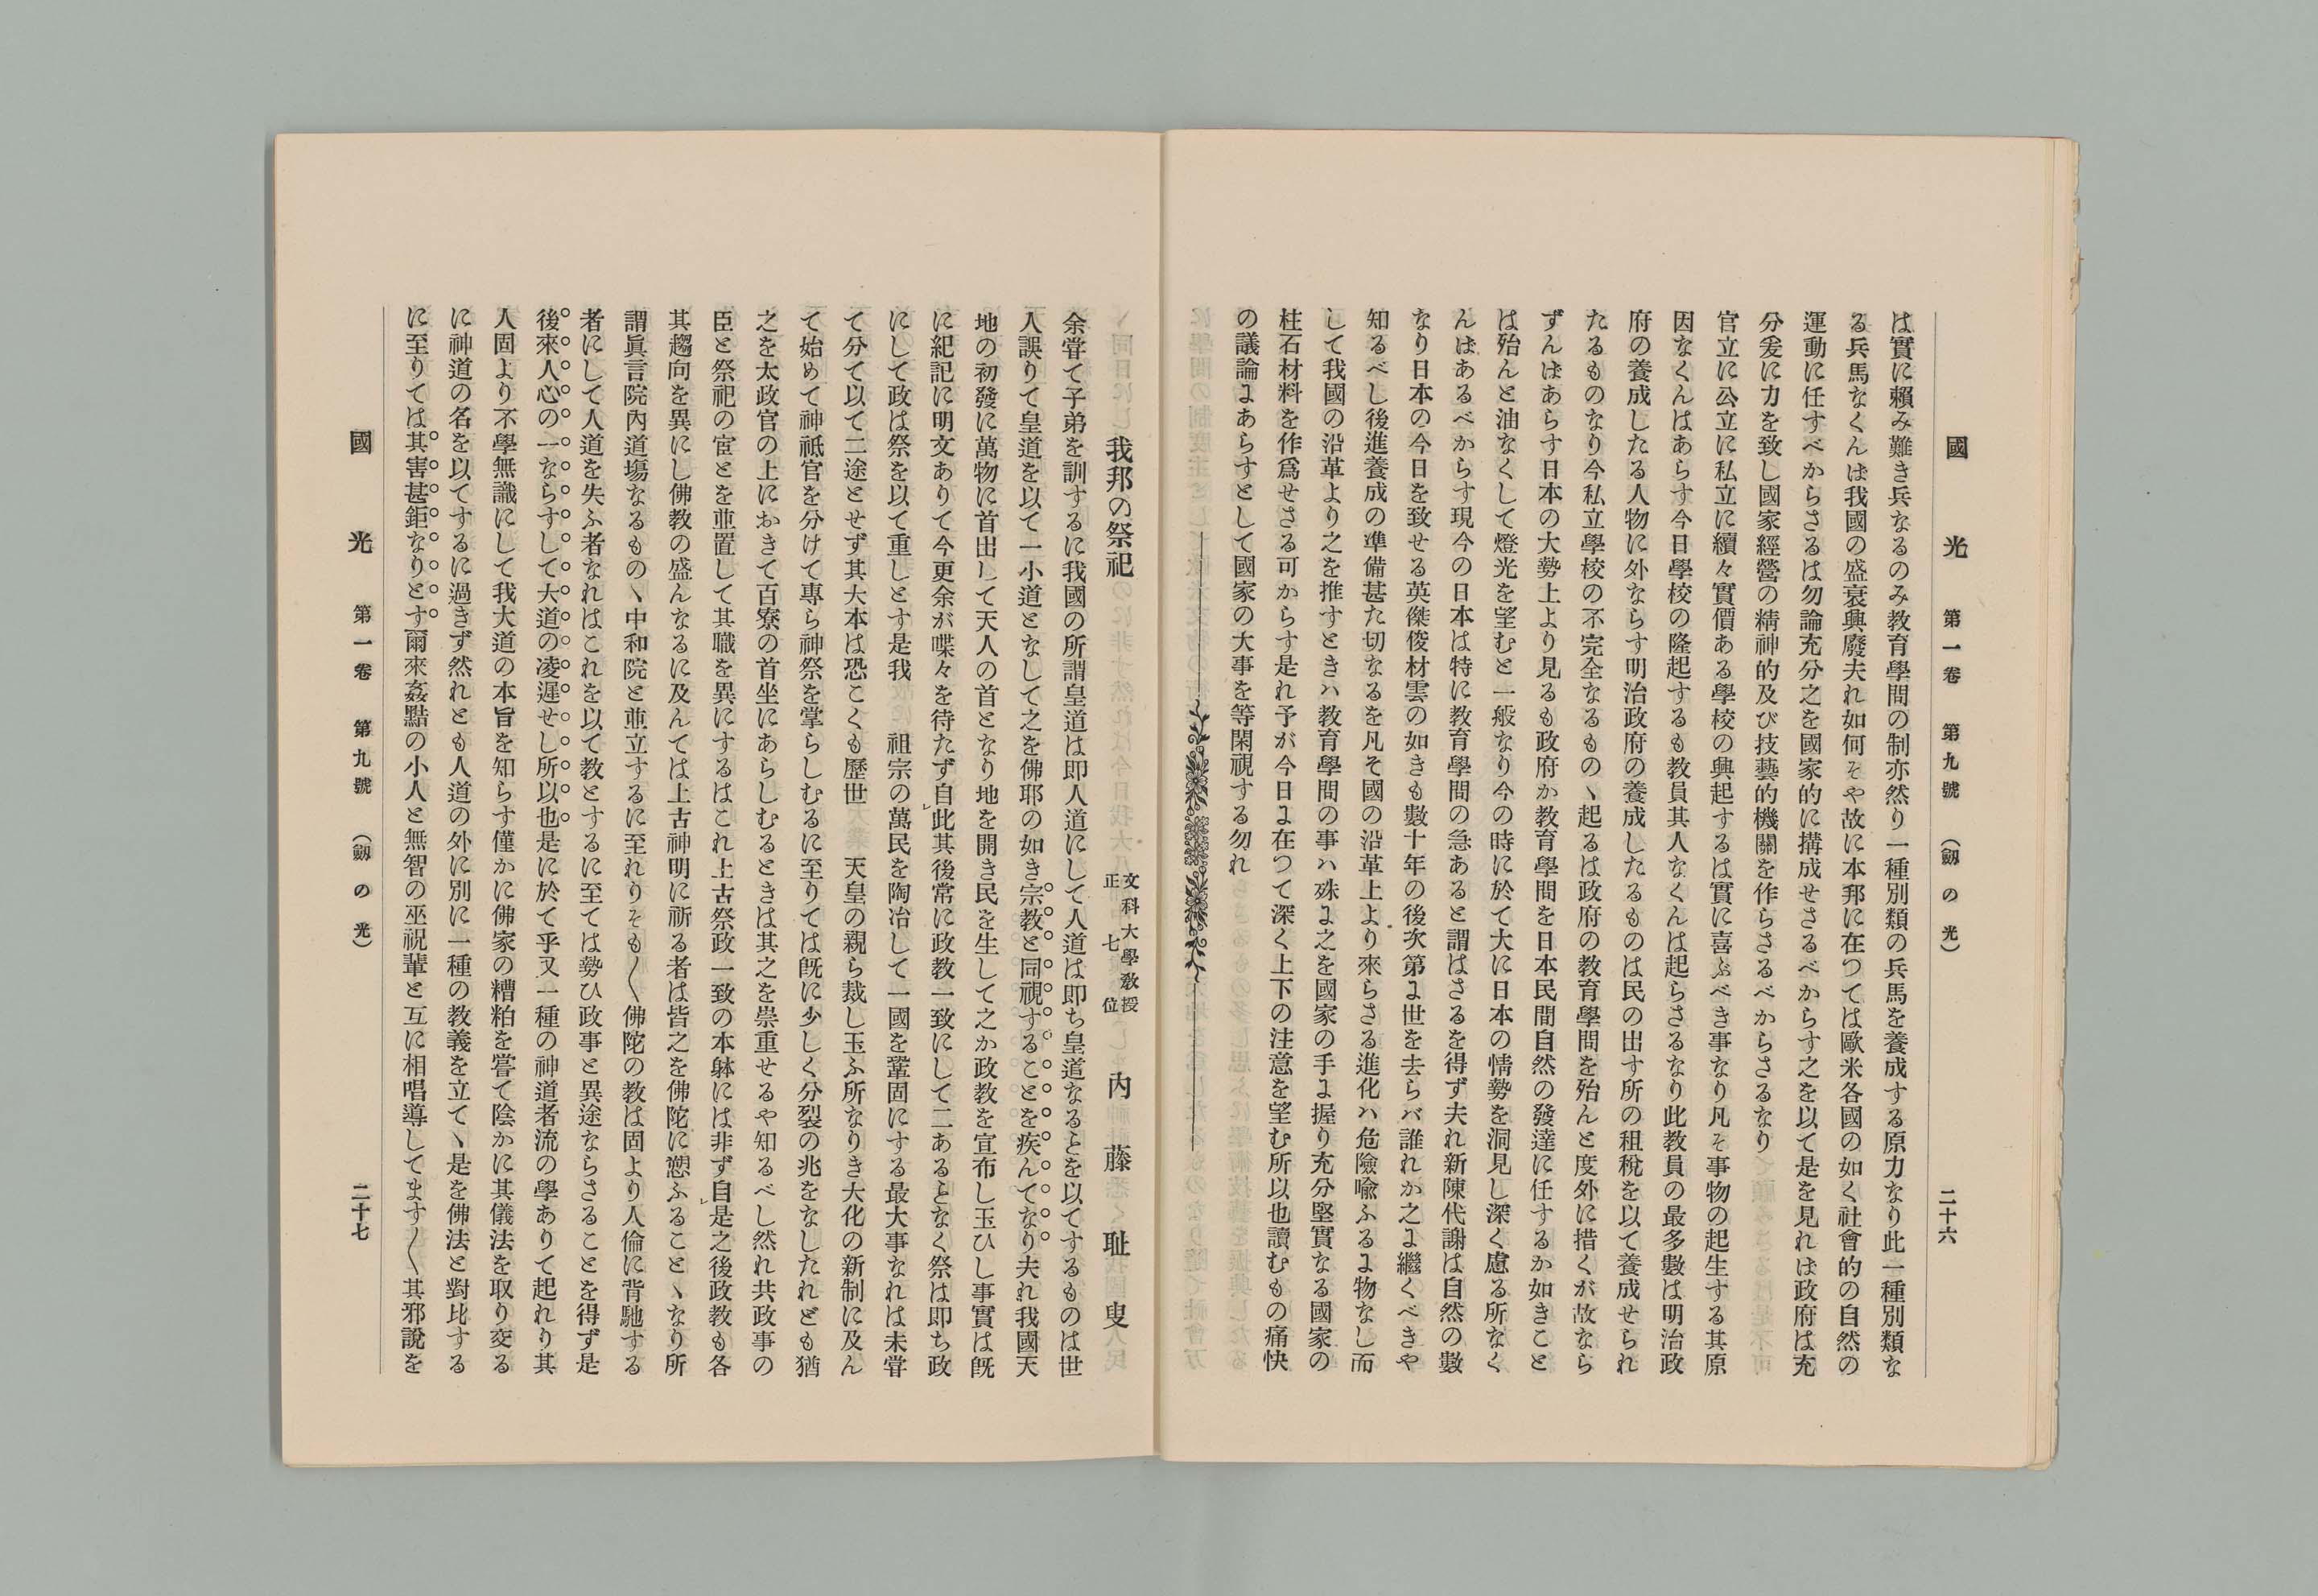 國　光　第一卷　第九號　（劔の光）　二十六
は實に賴み難き兵なるのみ教育學問の制亦然り一種別類の兵馬を養成する原力なり此一種別類な
る兵馬なくんは我國の盛衰興廢夫れ如何そや故に本邦に在つては歐米各國の如く社會的の自然の
運動に任すべからさるは勿論充分之を國家的に搆成せさるべからす之を以て是を見れは政府は充
分爰に力を致し國家經營の精神的及び技藝的機關を作らさるべからさるなり
官立に公立に私立に續々實價ある學校の興起するは實に喜ぶべき事なり凡そ事物の起生する其原
因なくんはあらす今日學校の隆起するも教員其人なくんは起らさるなり此教員の最多數は明治政
府の養成したる人物に外ならす明治政府の養成したるものは民の出す所の租稅を以て養成せられ
たるものなり今私立學校の不完全なるものヽ起るは政府の教育學問を殆んと度外に措くが故なら
ずんはあらす日本の大勢上より見るも政府か教育學問を日本民間自然の發達に任するか如きこと
は殆んと油なくして燈光を望むと一般なり今の時に於て大に日本の情勢を洞見し深く慮る所なく
んはあるべからす現今の日本は特に教育學問の急あると謂はさるを得ず夫れ新陳代謝は自然の數
なり日本の今日を致せる英傑俊材雲の如きも數十年の後次第に世を去らバ誰れか之に繼くべきや
知るべし後進養成の凖備甚た切なるを凡そ國の沿革上より來らさる進化ハ危險喩ふるに物なし而
して我國の沿革より之を推すときハ教育學問の事ハ殊に之を國家の手に握り充分堅實なる國家の
柱石材料を作爲せさる可からす是れ予が今日に在つて深く上下の注意を望む所以也讀むもの痛快
の議論にあらすとして國家の大事を等閑視する勿れ
我邦の祭祀
文科大學敎授
正七位
內藤耻叟
余甞て子弟を訓するに我國の所謂皇道は即人道にして人道は即ち皇道なるとを以てするものは世
人誤りて皇道を以て一小道となして之を佛耶の如き宗教と同視することを疾んてなり夫れ我國天
地の初發に萬物に首出して天人の首となり地を開き民を生して之か政教を宣布し玉ひし事實は旣
に紀記に明文ありて今更余が喋々を待たず自レ此其後常に政教一致にして二あるとなく祭は即ち政
にして政は祭を以て重しとす是我　祖宗の萬民を陶冶して一國を鞏固にする最大事なれは未甞
て分て以て二途とせず其大本は恐こくも歷世　天皇の親ら裁し玉ふ所なりき大化の新制に及ん
て始めて神祇官を分けて專ら神祭を掌らしむるに至りては旣に少しく分裂の兆をなしたれども猶
之を太政官の上におきて百寮の首坐にあらしむるときは其之を崇重せるや知るべし然れ共政事の
臣と祭祀の宦とを並置して其職を異にするはこれ上古祭政一致の本躰には非ず自レ是之後政教も各
其趨向を異にし佛教の盛んなるに及んては上古神明に祈る者は皆之を佛陀に愬ふることヽなり所
謂眞言院內道塲なるものヽ中和院と並立するに至れりそも〳〵佛陀の教は固より人倫に背馳する
者にして人道を失ふ者なれはこれを以て教とするに至ては勢ひ政事と異途ならさることを得ず是
後來人心の一ならすして大道の凌遲せし所以也是に於て乎又一種の神道者流の學ありて起れり其
人固より不學無識にして我大道の本旨を知らす僅かに佛家の糟粕を甞て陰かに其儀法を取り交る
に神道の名を以てするに過きず然れとも人道の外に別に一種の教義を立てヽ是を佛法と對比する
に至りては其害甚鉅なりとす爾來姦黠の小人と無智の巫祝輩と互に相唱導してます〳〵其邪說を
國　光　第一卷　第九號　（劔の光）　二十七